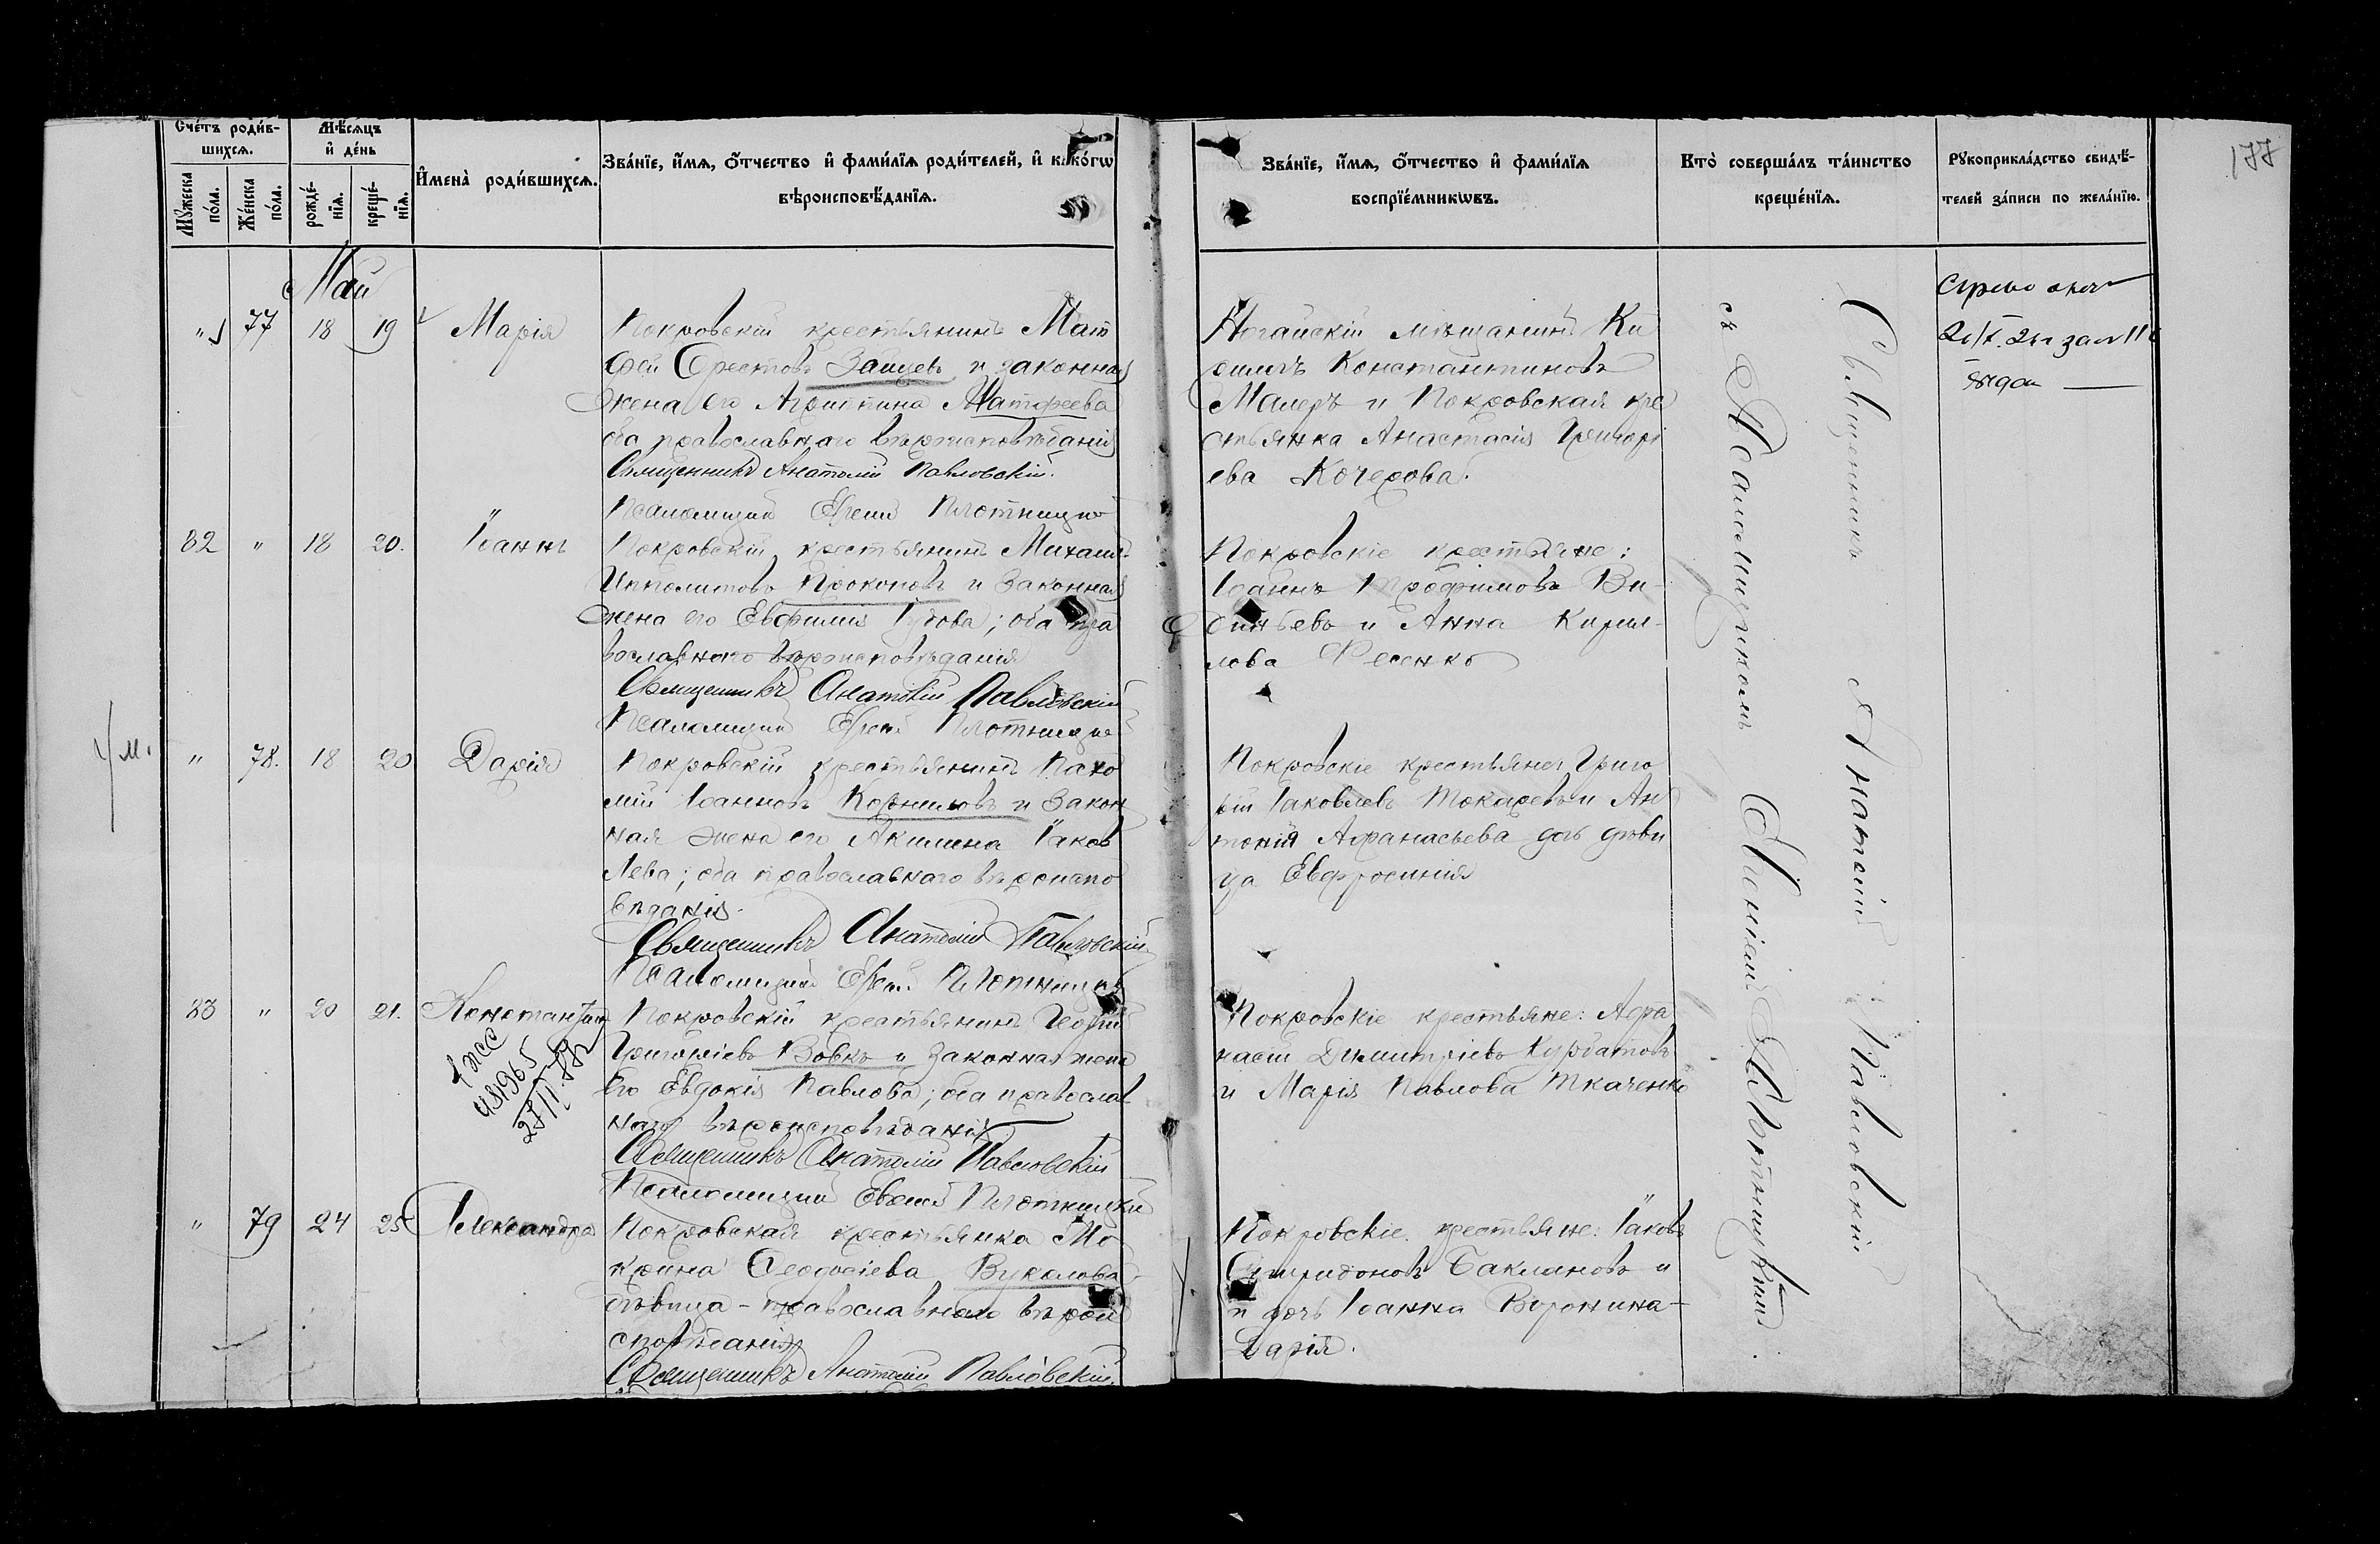 Счетъ родив-
шихся.
Мѣсяцъ
и день
Мужеска
пола.
Женска
пола.
рожде-
нія.
креще-
нія.
Имена родившихся.
Званіе, имя, отчество и фамилія родителей, и какогѡ
вѣроисповѣданія.
Званіе, имя, отчество и фамилія
воспріемникѡвъ.
Кто совершалъ таинство
крещенія.
Рукоприкладство свидѣ-
телей записи по желанію.
177
Май
" 77 18 19 Марія
Покровскій крестьянинъ Мат
фей Орестовъ Зайцевъ и законная
жена его Агриппина Матфеева
оба православнаго вѣроисповѣданія
Священникъ Анатолій Павловскій.
Псаломщикъ Плотницкій
Ногайскій мѣщанинъ
Константиновъ
Малеръ и Покровская кре
стьянка Анастасія Григорі
ева Кочерова.
82 " 18 20. Іоаннъ
Покровскій крестьянинъ Михаилъ
Ипполитовъ Прокоповъ и законная
жена его Евфимія Гудова; оба пра
вославнаго вѣроисповѣданія
Священникъ Анатолій Павловскій
Псаломщикъ Плотницкій
Покровскіе крестьяне:
Іоаннъ Трофимовъ Ви-
диньевъ и Анна Кирил-
лова Фесенко
ч м.
" 78. 18 20 Дарія
Покровскій крестьянинъ Пахо
мій Іоанновъ Корниловъ и закон
ная жена его Акилина Іаков
лева; оба православнаго вѣроиспо
вѣданія.
Священникъ Анатолій Павловскій
Псаломщикъ Плотницкій
Покровскіе крестьяне: Григо
рій Іаковлевъ Токаревъ и Ан
тонія Афанасьева дочь дѣви
ца Евфросинія
83 " 20 21. Константинъ
Покровскій крестьянинъ Георгій
Григоріевъ Вовкъ и законная жена
его Евдокія Павлова; оба православ
наго вѣроисповѣданія
Священникъ Анатолій Павловскій
Псаломщикъ Плотницкій
Покровскіе крестьяне: Афа
насій Димитріевъ Курбатовъ
и Марія Павлова Ткаченко
" 79 24 25 Александра
Покровская крестьянка Мо
крина Феодосіева Вуколова
дѣвица - православнаго вѣрои
споведанія
Священникъ Анатолій Павловскій
Покровскіе крестьяне: Іаковъ
Спиридоновъ Баклановъ и
и дочь Іоанна Воронина-
Дарія.
Священникъ Анатолій Павловскій
съ Псаломщикомъ Плотницкимъ